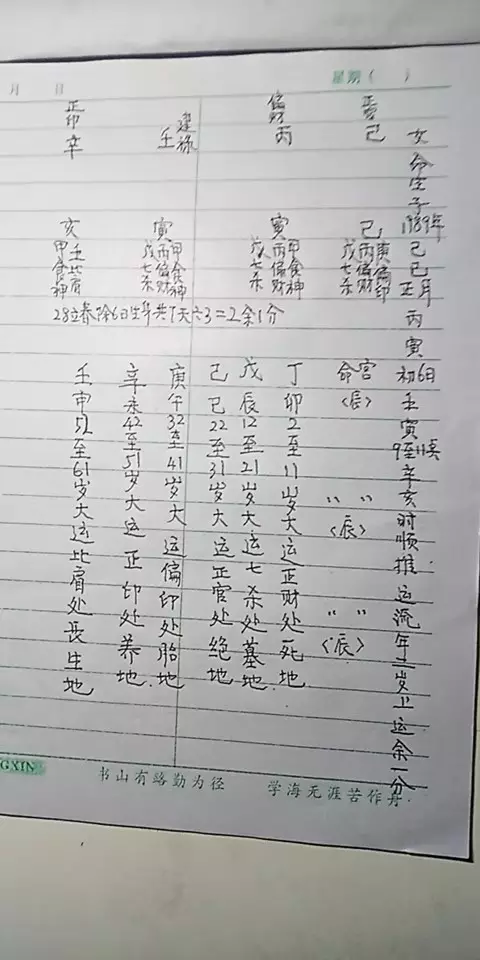 月 日 星期( )
女命生于1989年己巳正月丙寅初6日壬寅9至11点辛亥时顺推运流年二岁上运余一分
己
己
丙庚
偏偏
财印
戊
七
杀
偏财
丙
寅
戊丙甲
七偏食
杀财神
建禄
壬
寅
戊丙甲
七偏食
杀财神
正印
辛
亥
甲壬
食比
神肩
28立春除6日生年共7天六3=2余1分
命宫
〈辰〉
〃 〃
〈辰〉
〃 〃
〈辰〉
丁卯2至11岁大运正财处死地
戊辰12至21岁大运七杀处墓地.
己巳22至31岁大运正官处绝地
庚午32至41岁大运偏印处胎地
辛未42至51岁大运正印处养地.
壬申52至61岁大运比肩处长生地
GXIN 书山有路勤为径 学海无涯苦作舟